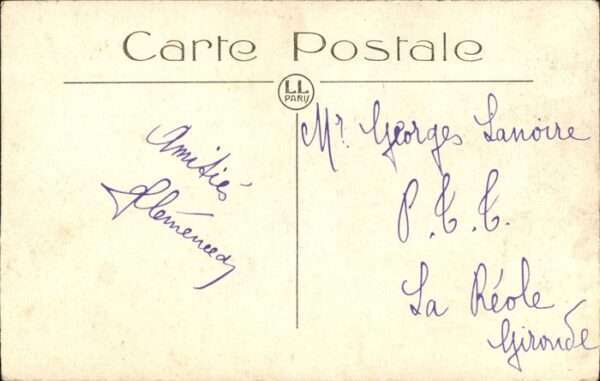 Carte Postale
LL
PARIS
Amitiés
Mr. Georges Lanoire
P.T.T.
La Réole
Gironde